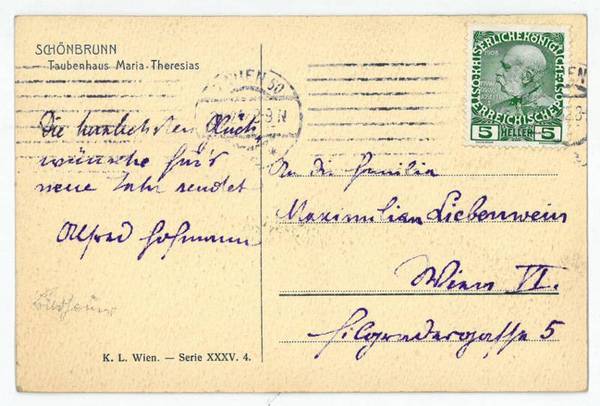 SCHÖNBRUNN
Taubenhaus Maria-Theresias
WIEN 50
9 N
Die herzlichsten Glück
wünsche für's
neue Jahr sendet
Alfred Hofmann
Bildhauer
K. L. Wien. — Serie XXXV. 4.
KAISERLICHE KÖNIGLICHE
ÖSTERREICHISCHE
1908
5 HELLER 5
An die Familie
Maximilian Liebenwein
Wien VI.
Hilgredergasse 5